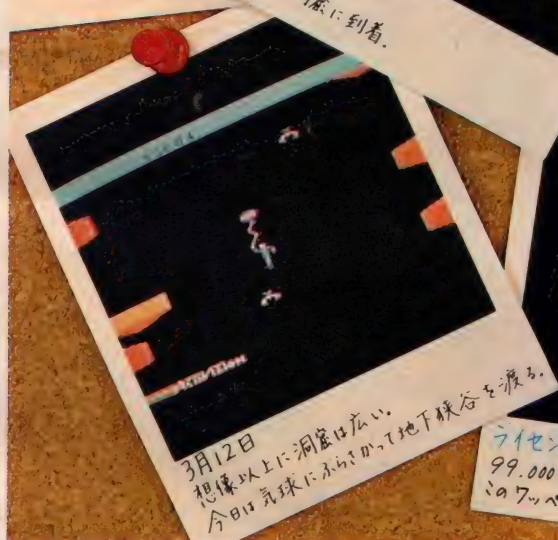 窟に到着.
ACTIVISION
3月12日
想像以上に洞窟は広い.
今日は気球にぶらさがって地下狭谷を渡る.
ライセン
99.000
このワッペ